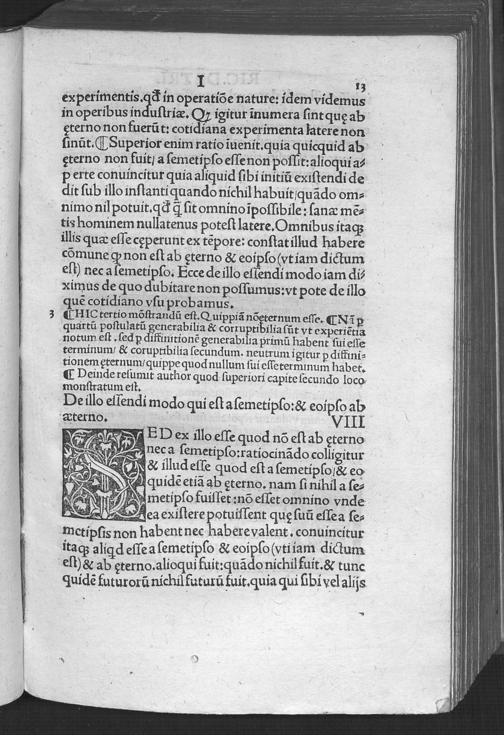 I
13
experimentis. qđ in operatiõe nature: idem videmus
in operibus industriæ. Qꝫ igitur ĩnumera sint quę ab
ęterno non fuerũt: cotidiana experimenta latere non
sinũt. ¶ Superior enim ratio ĩuenit. quia quicquid ab
ęterno non fuit/ a semetipso esse non possit: alioqui a⸗
perte conuincitur quia aliquid sibi initiũ existendi de
dit sub illo instanti quando nichil habuit/ quãdo om⸗
nimo nil potuit. qđ q̃ sit omnino ĩpossibile: sanæ mẽ⸗
tis hominem nullatenus potest latere. Omnibus itaqꝫ
illis quæ esse cęperunt ex tẽpore: constat illud habere
cõmune ꝙ non est ab ęterno & eoipso (vt iam dictum
est) nec a semetipso. Ecce de illo essendi modo iam di⸗
ximus de quo dubitare non possumus: vt pote de illo
quẽ cotidiano vsu probamus.
3 ¶ HIC tertio mõstrandũ est. Quippiã nõęternum esse. ¶ Nã ꝑ
quartũ postulatũ generabilia & corruptibilia sũt vt experiẽtia
notum est. sed ꝑ diffinitionẽ generabilia primũ habent sui esse
terminum/ & corruptibilia secundum. neutrum igitur ꝑ diffini⸗
tionem ęternum/ quippe quod nullum sui esse terminum habet.
¶ Deinde resumit author quod superiori capite secundo loco
monstratum est.
De illo essendi modo qui est a semetipso: & eoipso ab
æterno. VIII
SED ex illo esse quod nõ est ab ęterno
nec a semetipso: ratiocinãdo colligitur
& illud esse quod est a semetipso/ & eo
quidẽ etiã ab ęterno. nam si nihil a se⸗
metipso fuisset: nõ esset omnino vnde
ea existere potuissent quę suũ esse a se⸗
metipsis non habent nec habere valent. conuincitur
itaqꝫ aliq̇d esse a semetipso & eoipso (vti iam dictum
est) & ab ęterno. alioqui fuit: quãdo nichil fuit. & tunc
quidẽ futurorũ nichil futurũ fuit. quia qui sibi vel alijs